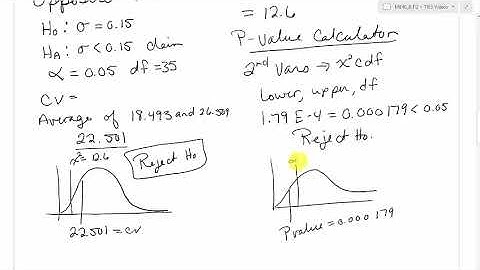 H₀: σ = 0.15
Hₐ: σ < 0.15 claim
α = 0.05 df = 35
CV =
Average of 18.493 and 26.509
22.501
x² = 12.6
Reject H₀
22.501 = CV
= 12.6
P-Value Calculator
2nd Vars → x²cdf
Lower, upper, df
1.79 E-4 = 0.000179 < 0.05
Reject H₀.
Pvalue = 0.000179